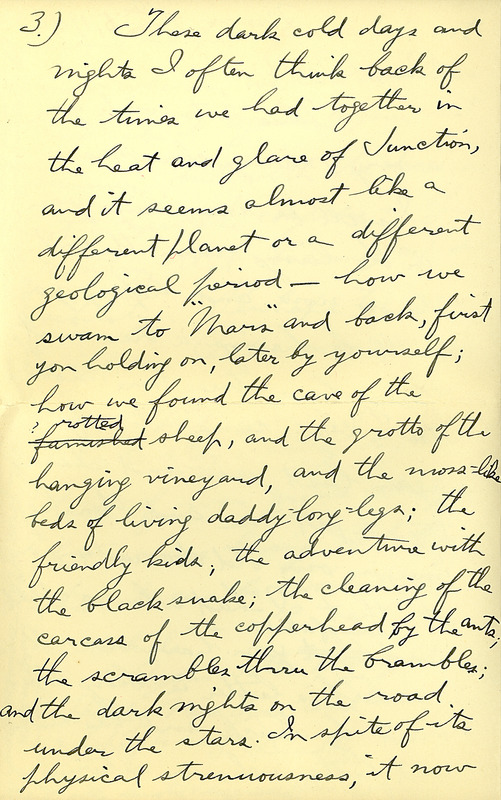 3.) These dark cold days and
nights I often think back of
the times we had together in
the heat and glare of Junction,
and it seems almost like a
different planet or a different
geological period — how we
swam to "Mars" and back, first
you holding on, later by yourself;
how we found the cave of the
? rotted
furnished sheep, and the grotto of the
hanging vineyard, and the moss-like
beds of living daddy-long-legs; the
friendly kids; the adventure with
the black snake; the cleaning of the
carcass of the copperhead by the ants;
the scrambles thru the brambles;
and the dark nights on the road
under the stars. In spite of its
physical strenuousness, it now